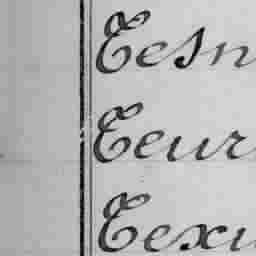 Eesn
Eeur
Eexu